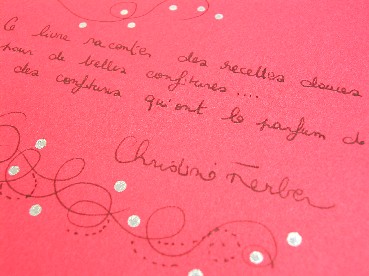 Ce livre raconter des recettes douces
pour de belles confitures....
des confitures qui ont le parfum de
Christine Ferber